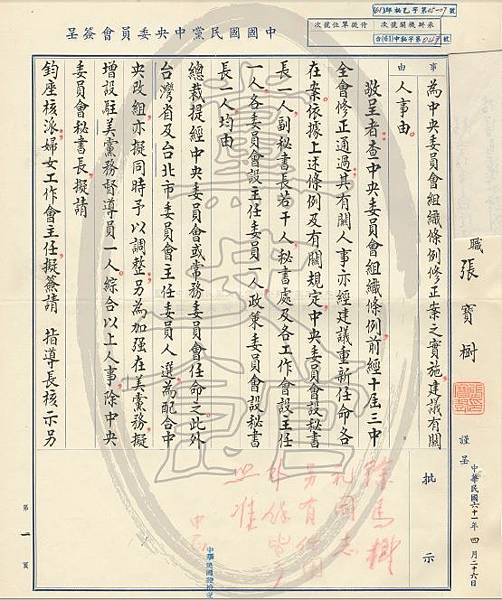 中國國民黨中央委員會簽呈
承辦機關號次
待核單位號次
事由
為中央委員會組織條例修正案之實施,建議有關
人事由。
敬呈者:查中央委員會組織條例,前經十屆三中
全會修正通過,其有關人事亦經建議重新任命各
在案。依據上述條例及有關規定,中央委員會設秘書
長一人,副秘書長若干人,秘書處及各工作會設主任
一人,各委員會設主任委員一人,政策委員會設秘書
長一人,均由
總裁提經中央委員會或常務委員會任命之。此外
台灣省及台北市委員會主任委員人選,為配合中
央改組,亦擬同時予以調整。另為加强在美黨務,擬
增設駐美黨務督導員一人。綜合以上人事,除中央
委員會秘書長,擬請
鈞座核派,婦女工作會主任,擬簽請 指導長核示,另
職 張寶樹 謹呈
中華民國六十一年四月二十六
批示
照准
第一頁